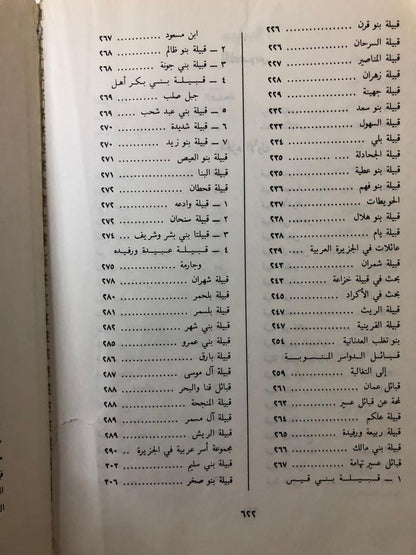 قبيلة بنو قرن ........ ٢٢٦
قبيلة السرحان ........ ٢٢٦
قبيلة المناصير ........ ٢٢٧
قبيلة زهران ........ ٢٢٨
قبيلة جهينة ........ ٢٢٩
قبيلة بنو سعد ........ ٢٣٢
قبيلة السهول ........ ٢٣٣
قبيلة بلي ........ ٢٣٤
قبيلة الجحادلة ........ ٢٣٥
قبيلة بنو عطية ........ ٢٣٥
قبيلة بنو فهم ........ ٢٣٦
الحويطات ........ ٢٣٧
قبيلة بنو هلال ........ ٢٣٨
قبيلة يام ........ ٢٣٨
عائلات في الجزيرة العربية ٢٣٩
قبيلة شمران ........ ٢٤٣
بحث في قبيلة خزاعة ........ ٢٤٣
بحث في الأكراد ........ ٢٤٥
قبيلة الريث ........ ٢٤٧
قبيلة القرينية ........ ٢٤٧
بنو تغلب العدنانية ........ ٢٥٤
قبائل الدواسر المنسوبة
إلى التغالبة ........ ٢٥٩
قبائل عمان ........ ٢٦١
لمحة عن قبائل عسير ........ ٢٦٣
قبيلة علكم ........ ٢٦٤
قبيلة ربيعة ورفيدة ........ ٢٦٥
قبيلة بني مالك ........ ٢٦٦
قبائل عسير تهامة ........ ٢٦٧
١ ــ قبيلة بني قيس
ابن مسعود ........ ٢٦٧
٢ ــ قبيلة بنو ظالم ........ ٢٦٨
٣ ــ قبيلة بني جونة ........ ٢٦٨
٤ ــ قبيلة بني بكر أهل
جبل صلب ........ ٢٦٩
٥ ــ قبيلة بني عبد شحب ........ ٢٦٩
٦ ــ قبيلة شديدة ........ ٢٧٠
٧ ــ قبيلة بنو زيد ........ ٢٧٠
قبيلة بنو العيص ........ ٢٧١
قبيلة البنا ........ ٢٧١
قبيلة قحطان ........ ٢٧٢
١ ــ قبيلة وادعه ........ ٢٧٢
٢ ــ قبيلة سنحان ........ ٢٧٢
٣ ــ قبيلتا بني بشر وشريف .... ٢٧٤
٤ ــ قبيلة عبيدة ورفيده
وجارمة ........ ٢٧٥
قبيلة شهران ........ ٢٧٨
قبيلة بلحمر ........ ٢٨٠
قبيلة بلسمر ........ ٢٨١
قبيلة بني شهر ........ ٢٨٢
قبيلة بني عمرو ........ ٢٨٥
قبيلة بارق ........ ٢٨٦
قبيلة آل موسى ........ ٢٨٧
قبائل قنا والبحر ........ ٢٨٨
قبيلة المنجحة ........ ٢٨٨
قبيلة آل مسمر ........ ٢٨٩
قبيلة الريش ........ ٢٨٩
مجموعة أسر عربية في الجزيرة .. ٢٩٠
قبيلة بني سليم ........ ٣٠٣
قبيلة بنو صخر ........ ٣٠٦
٦٢٢